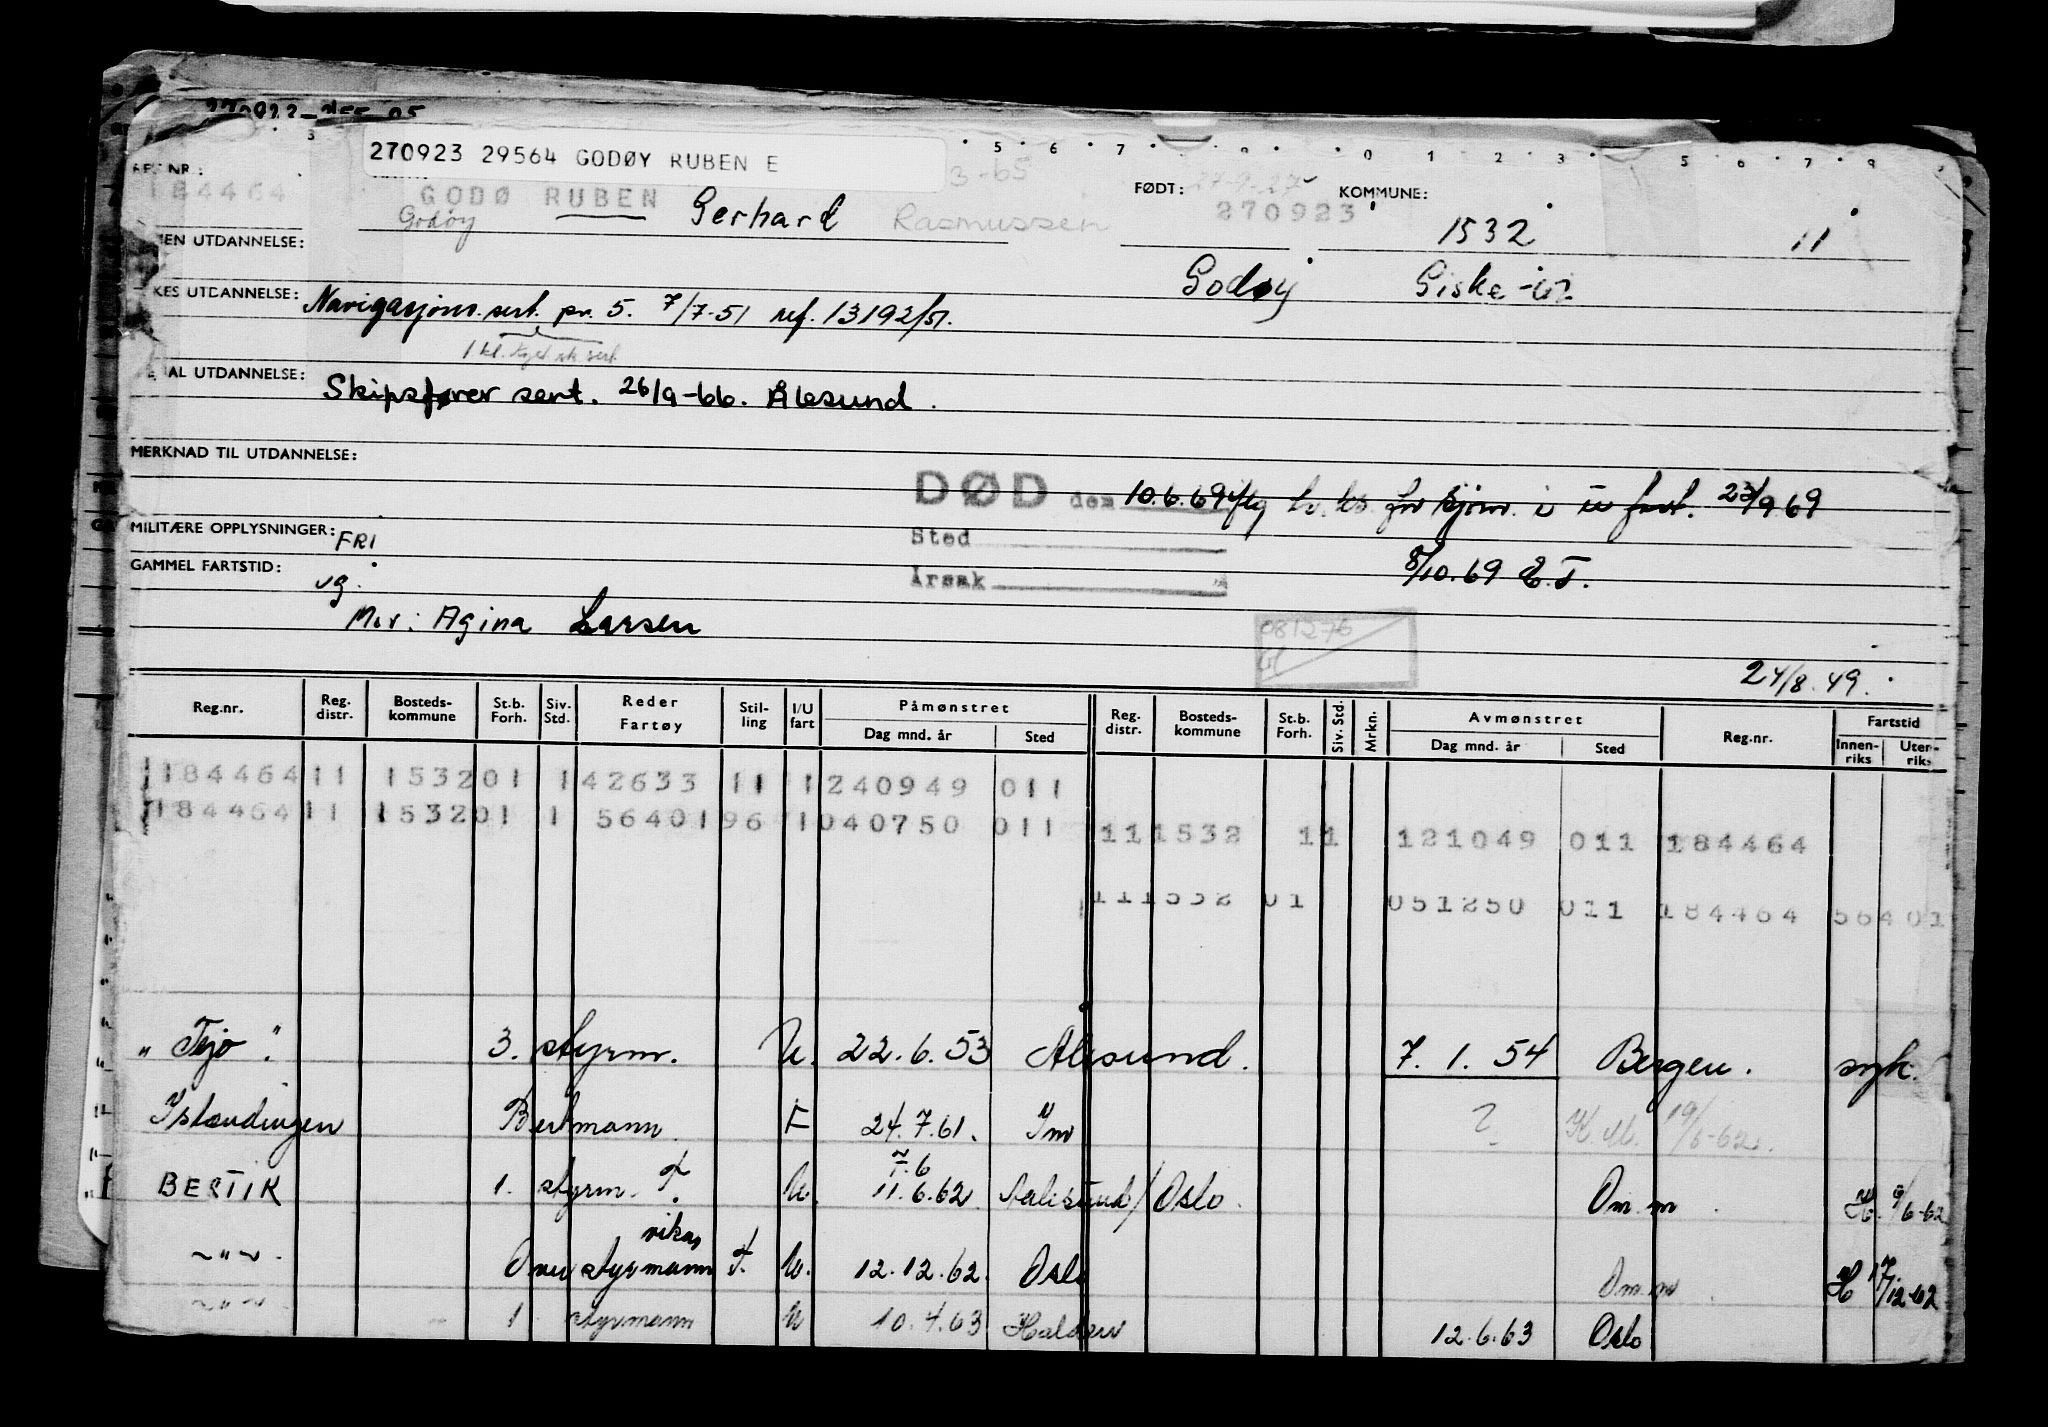 270923 29564 GODØY RUBEN E
3-65
NR.: 184464
GODØ RUBEN Gerhard Rasmussen
Godøy
FØDT: 270923
KOMMUNE: 1532 11
Godøy Giske
UTDANNELSE:
UTDANNELSE: Navigasjons.sert. pr. 5. 7/7-51 ref. 13192/51.
UTDANNELSE: Skipsfører sert. 26/9-66. Ålesund.
MERKNAD TIL UTDANNELSE:
DØD den 10.6.69 for sjøm. i 23/9 69
MILITÆRE OPPLYSNINGER: FRI
Sted
8/10.69 E.T.
GAMMEL FARTSTID: ug.
Årsak
Mor: Agina Larsen
081276
24/8.49.
Reg.nr. Reg. distr. Bosteds-kommune St.b. Forh. Siv. Std. Reder Fartøy Stil-ling I/U fart Påmønstret Dag mnd. år Sted Reg. distr. Bosteds-kommune St.b. Forh. Siv. Std. Mrkn. Avmønstret Dag mnd. år Sted Reg.nr. Fartstid Innen-riks Uten-riks
184464 11 1532 01 1 42633 11 1 240949 011
184464 11 1532 01 1 56401 96 1 040750 011
11 1532 11 121049 011 184464
11 1532 01 051250 011 184464 56401
"Tejo". 3. styrm. U. 22.6.53 Ålesund. 7.1.54 Bergen. syk.
Islendingen Bestmann F 24.7.61. Im ? 19/6-62.
BESTIK 1. styrm. U. 11.6.62 Aalesund/Oslo. Om.m
~"~ Over styrmann vikar U. 12.12.62. Oslo Om.m 17/12-62
~"~ 1 styrmann U 10.4.63 Halden 12.6.63 Oslo